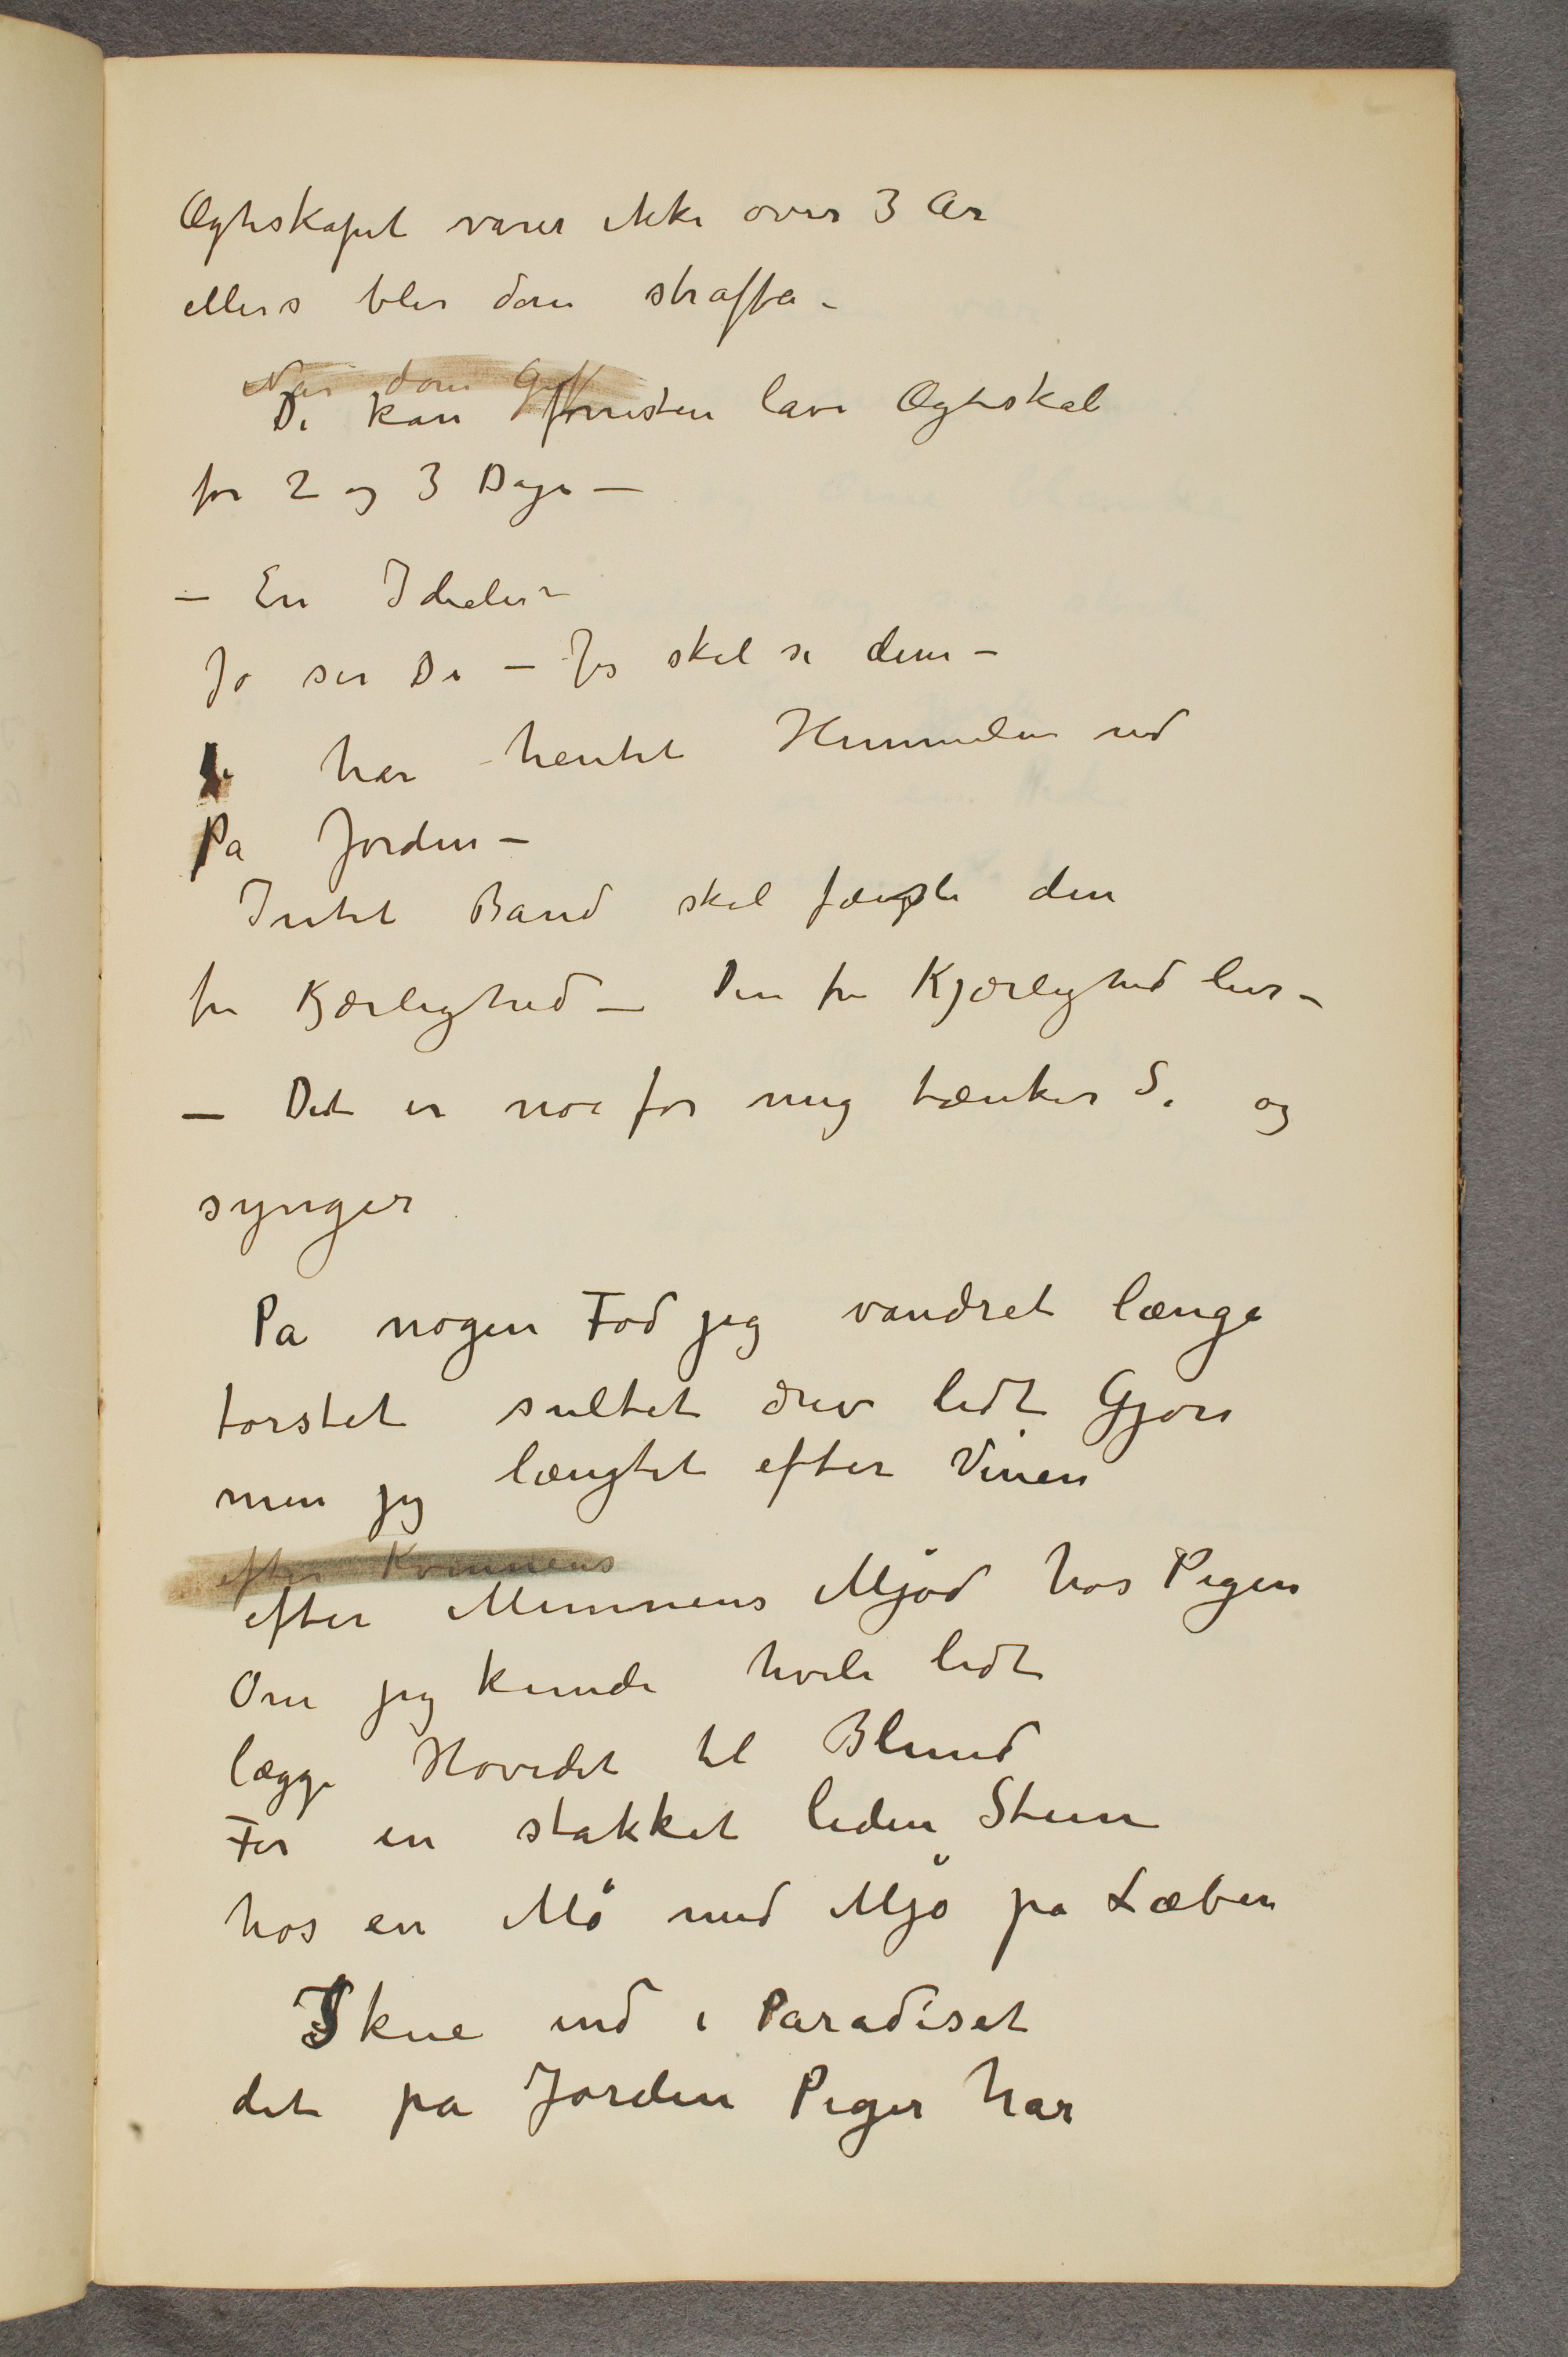 Ægteskapet varer ikke over 3 Ar
ellers blir dom straffa –
Når dom Gif
De kan forresten lave Ægteskab
for 2 og 3 Dage –
– En Idealer –
Jo ser De – Jeg skal si dem –
har hentet Himmelen ned
Pa Jorden –
Intet Band skal fængsle den
fri Kjærlighed – Den fri Kjærlighed lever –
– Det er noe for mig tænker S. og
synger
Pa nøgen Fod jeg vandret længe
tørstet sultet drev lidt Gjøn
men jeg længtet efter Vinen
efter Kvinnens
efter Minnens Mjød hos Pigen
Om jeg kunde hvile lidt
lægge Hovedet til Blund
For en stakket liden Stun
hos en Mø med Mjø pa Læben
Skue ind i Paradiset
det pa Jorden Piger har